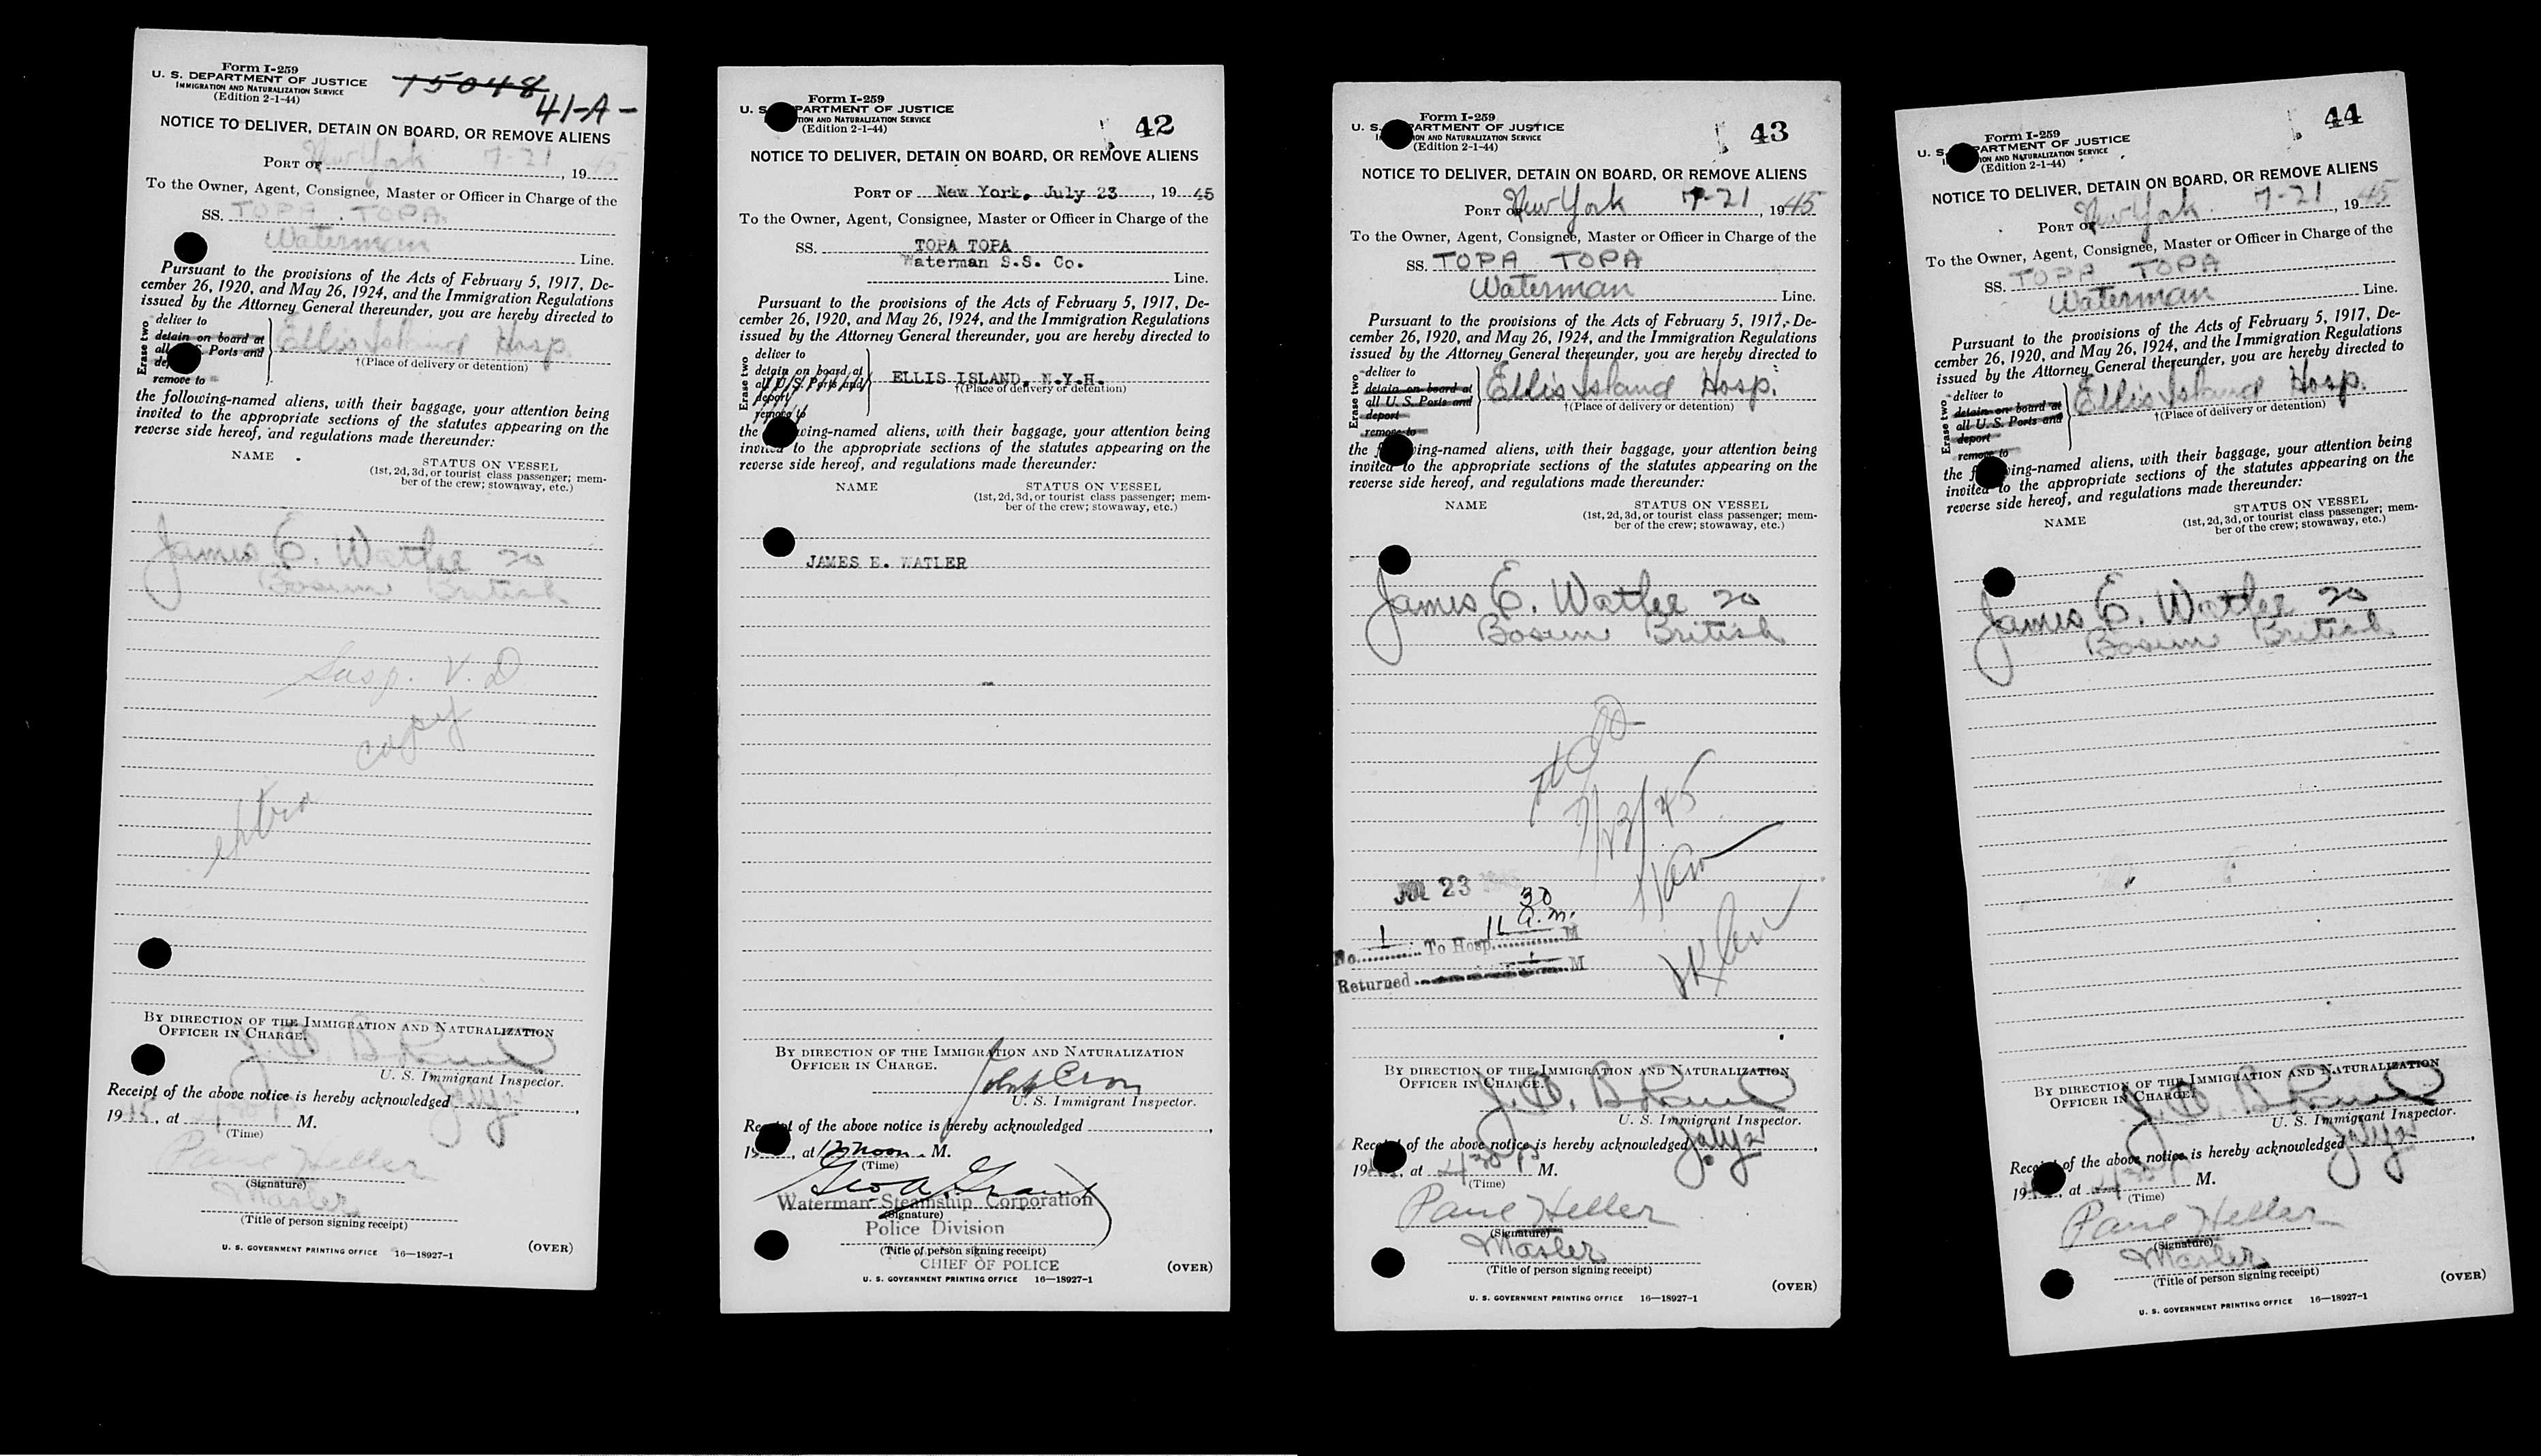 Form I-259
U. S. DEPARTMENT OF JUSTICE
IMMIGRATION AND NATURALIZATION SERVICE
(Edition 2-1-44)
15048
41-A-
NOTICE TO DELIVER, DETAIN ON BOARD, OR REMOVE ALIENS
PORT OF New York 7-21, 1945
To the Owner, Agent, Consignee, Master or Officer in Charge of the
SS. TOPA TOPA
Waterman Line.
Pursuant to the provisions of the Acts of February 5, 1917, De-
cember 26, 1920, and May 26, 1924, and the Immigration Regulations
issued by the Attorney General thereunder, you are hereby directed to
Erase two
deliver to
detain on board at
all U. S. Ports and
remove to
Ellis Island Hosp.
†(Place of delivery or detention)
the following-named aliens, with their baggage, your attention being
invited to the appropriate sections of the statutes appearing on the
reverse side hereof, and regulations made thereunder:
NAME
STATUS ON VESSEL
(1st, 2d, 3d, or tourist class passenger; mem-
ber of the crew; stowaway, etc.)
James E. Watler 20
Bosun British
Susp. V. D
copy
extra
BY DIRECTION OF THE IMMIGRATION AND NATURALIZATION
OFFICER IN CHARGE.
U. S. Immigrant Inspector.
Receipt of the above notice is hereby acknowledged July 21,
1945, at 4 30 P M.
(Time)
Paul Heller
(Signature)
Master
(Title of person signing receipt)
U. S. GOVERNMENT PRINTING OFFICE 16—18927-1
(OVER)
Form I-259
U. S. DEPARTMENT OF JUSTICE
IMMIGRATION AND NATURALIZATION SERVICE
(Edition 2-1-44)
42
NOTICE TO DELIVER, DETAIN ON BOARD, OR REMOVE ALIENS
PORT OF New York, July 23, 1945
To the Owner, Agent, Consignee, Master or Officer in Charge of the
SS. TOPA TOPA
Waterman S.S. Co.
Line.
Pursuant to the provisions of the Acts of February 5, 1917, De-
cember 26, 1920, and May 26, 1924, and the Immigration Regulations
issued by the Attorney General thereunder, you are hereby directed to
Erase two
deliver to
detain on board at
all U. S. Ports and
deport
remove to
ELLIS ISLAND, N.Y.H.
†(Place of delivery or detention)
the following-named aliens, with their baggage, your attention being
invited to the appropriate sections of the statutes appearing on the
reverse side hereof, and regulations made thereunder:
NAME
STATUS ON VESSEL
(1st, 2d, 3d, or tourist class passenger; mem-
ber of the crew; stowaway, etc.)
JAMES E. WATLER
BY DIRECTION OF THE IMMIGRATION AND NATURALIZATION
OFFICER IN CHARGE.
U. S. Immigrant Inspector.
Receipt of the above notice is hereby acknowledged
19, at 12 Noon. M.
(Time)
Waterman Steamship Corporation
(Signature)
Police Division
(Title of person signing receipt)
CHIEF OF POLICE
U. S. GOVERNMENT PRINTING OFFICE 16—18927-1
(OVER)
Form I-259
U. S. DEPARTMENT OF JUSTICE
IMMIGRATION AND NATURALIZATION SERVICE
(Edition 2-1-44)
43
NOTICE TO DELIVER, DETAIN ON BOARD, OR REMOVE ALIENS
PORT OF New York 7-21, 1945
To the Owner, Agent, Consignee, Master or Officer in Charge of the
SS. TOPA TOPA
Waterman Line.
Pursuant to the provisions of the Acts of February 5, 1917, De-
cember 26, 1920, and May 26, 1924, and the Immigration Regulations
issued by the Attorney General thereunder, you are hereby directed to
Erase two
deliver to
detain on board at
all U. S. Ports and
deport
remove to
Ellis Island Hosp.
†(Place of delivery or detention)
the following-named aliens, with their baggage, your attention being
invited to the appropriate sections of the statutes appearing on the
reverse side hereof, and regulations made thereunder:
NAME
STATUS ON VESSEL
(1st, 2d, 3d, or tourist class passenger; mem-
ber of the crew; stowaway, etc.)
James E. Watler 20
Bosun British
7/23/45
JUL 23 1945
No. 1 To Hosp. 11 30 a.m. M
Returned M
BY DIRECTION OF THE IMMIGRATION AND NATURALIZATION
OFFICER IN CHARGE.
U. S. Immigrant Inspector.
Receipt of the above notice is hereby acknowledged July 21,
19, at 4 30 P M.
(Time)
Paul Heller
(Signature)
Master
(Title of person signing receipt)
(OVER)
U. S. GOVERNMENT PRINTING OFFICE 16—18927-1
Form I-259
U. S. DEPARTMENT OF JUSTICE
IMMIGRATION AND NATURALIZATION SERVICE
(Edition 2-1-44)
44
NOTICE TO DELIVER, DETAIN ON BOARD, OR REMOVE ALIENS
PORT OF New York 7-21, 1945
To the Owner, Agent, Consignee, Master or Officer in Charge of the
SS. TOPA TOPA
Waterman Line.
Pursuant to the provisions of the Acts of February 5, 1917, De-
cember 26, 1920, and May 26, 1924, and the Immigration Regulations
issued by the Attorney General thereunder, you are hereby directed to
Erase two
deliver to
detain on board at
all U. S. Ports and
deport
remove to
Ellis Island Hosp.
†(Place of delivery or detention)
the following-named aliens, with their baggage, your attention being
invited to the appropriate sections of the statutes appearing on the
reverse side hereof, and regulations made thereunder:
NAME
STATUS ON VESSEL
(1st, 2d, 3d, or tourist class passenger; mem-
ber of the crew; stowaway, etc.)
James E. Watler 20
Bosun British
BY DIRECTION OF THE IMMIGRATION AND NATURALIZATION
OFFICER IN CHARGE.
U. S. Immigrant Inspector.
Receipt of the above notice is hereby acknowledged July 21,
19, at 4 30 P M.
(Time)
Paul Heller
(Signature)
Master
(Title of person signing receipt)
(OVER)
U. S. GOVERNMENT PRINTING OFFICE 16—18927-1